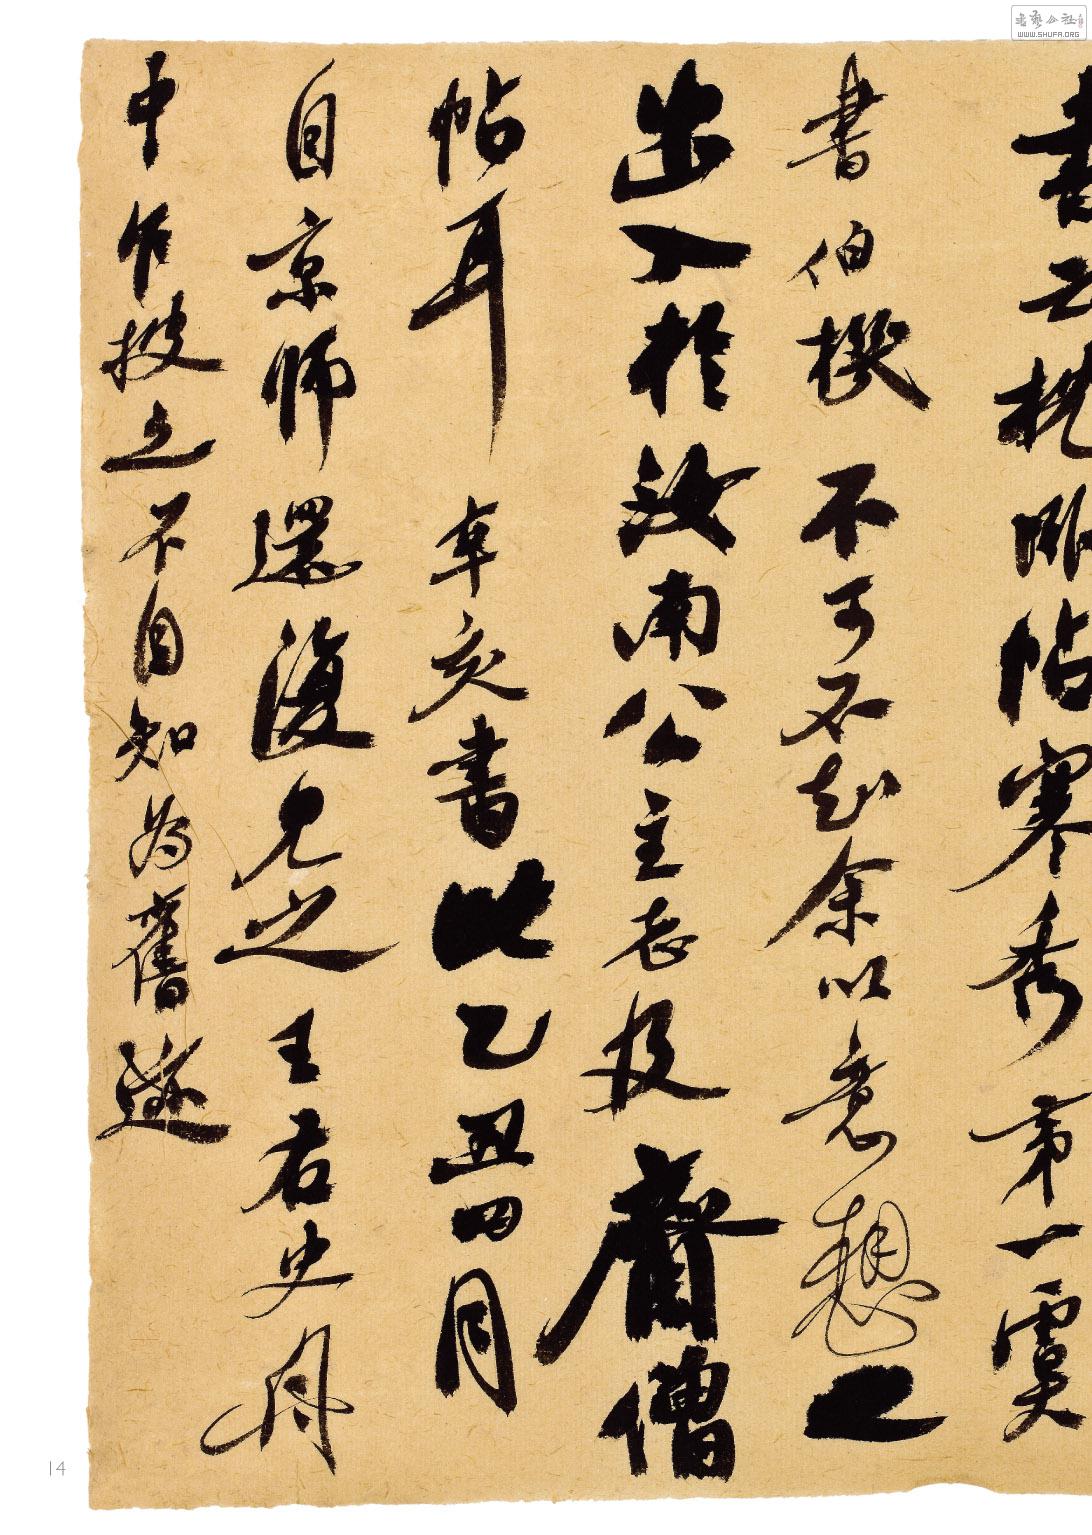 書云枕卧帖寒秀第一虞
書伯不可不起余以意想之
出入於汝南公主志及齋僧
帖耳 辛亥書此乙丑四月
自京師還復見之王君史舟
中作披之不自知為舊迹
書藝公社
WWW.SHUFA.ORG
14